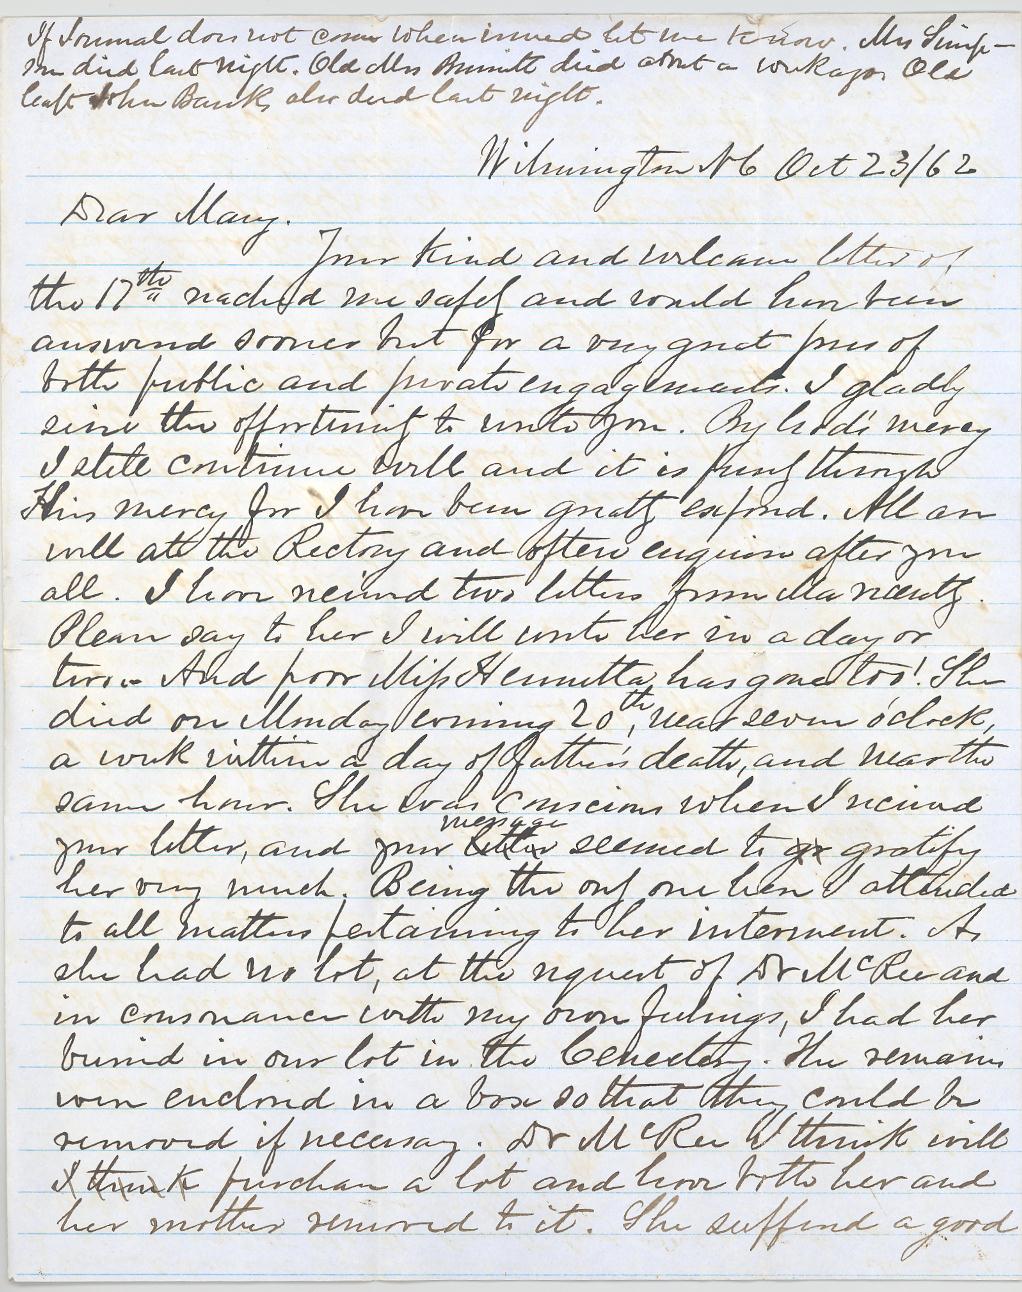 If Journal does not come when issued let me know. Mrs Simp-
son died last night. Old Mrs died about a week ago. Old
Capt John Banks also died last night.
Wilmington NC Oct 23/62
Dear Mary.
Your kind and welcome letter of
the 17th reached me safely and would have been
answered sooner but for a very great press of
both public and private engagements. I gladly
seize the opportunity to write you. By God's mercy
I still continue well and it is purely through
His mercy for I have been greatly exposed. All are
well at the Rectory and often enquire after you
all. I have received two letters from Ma recently.
Please say to her I will write her in a day or
two.- And poor Miss Henrietta has gone too! She
died on Monday evening 20th, near seven o'clock,
a week within a day of Father's death, and near the
same hour. She was conscious when I received
your letter, and your letter message seemed to gr gratify
her very much. Being the only one here I attended
to all matters pertaining to her interment. As
she had no lot, at the request of Dr McRee and
in consonance with my own feelings, I had her
buried in our lot in the Cemetery. The remains
were enclosed in a box so that they could be
removed if necessary. Dr McRee I think will
I think purchase a lot and have both her and
her mother removed to it. She suffered a good